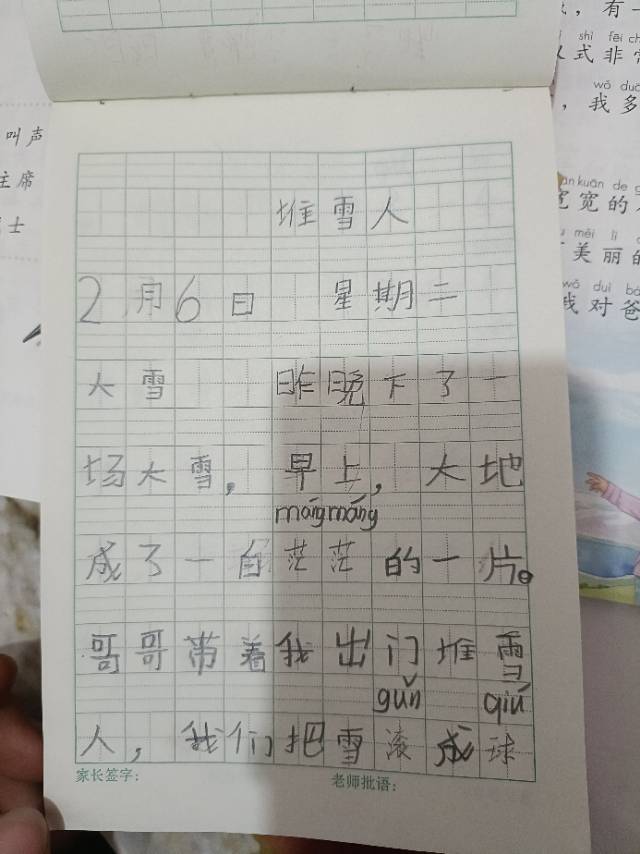 堆雪人
2月6日 星期二
大雪 昨晚下了一
场大雪，早上，大地
mángmáng
成了一白茫茫的一片。
哥哥带着我出门堆雪
gǔn qiú
人，我们把雪滚成球
家长签字： 老师批语：
叫声
主席
士
，有一
shì fēi ch
式非常
wǒ duō
，我多
ān kuān de g
宽宽的
měi lì
美丽的
wǒ duì bà
我对爸